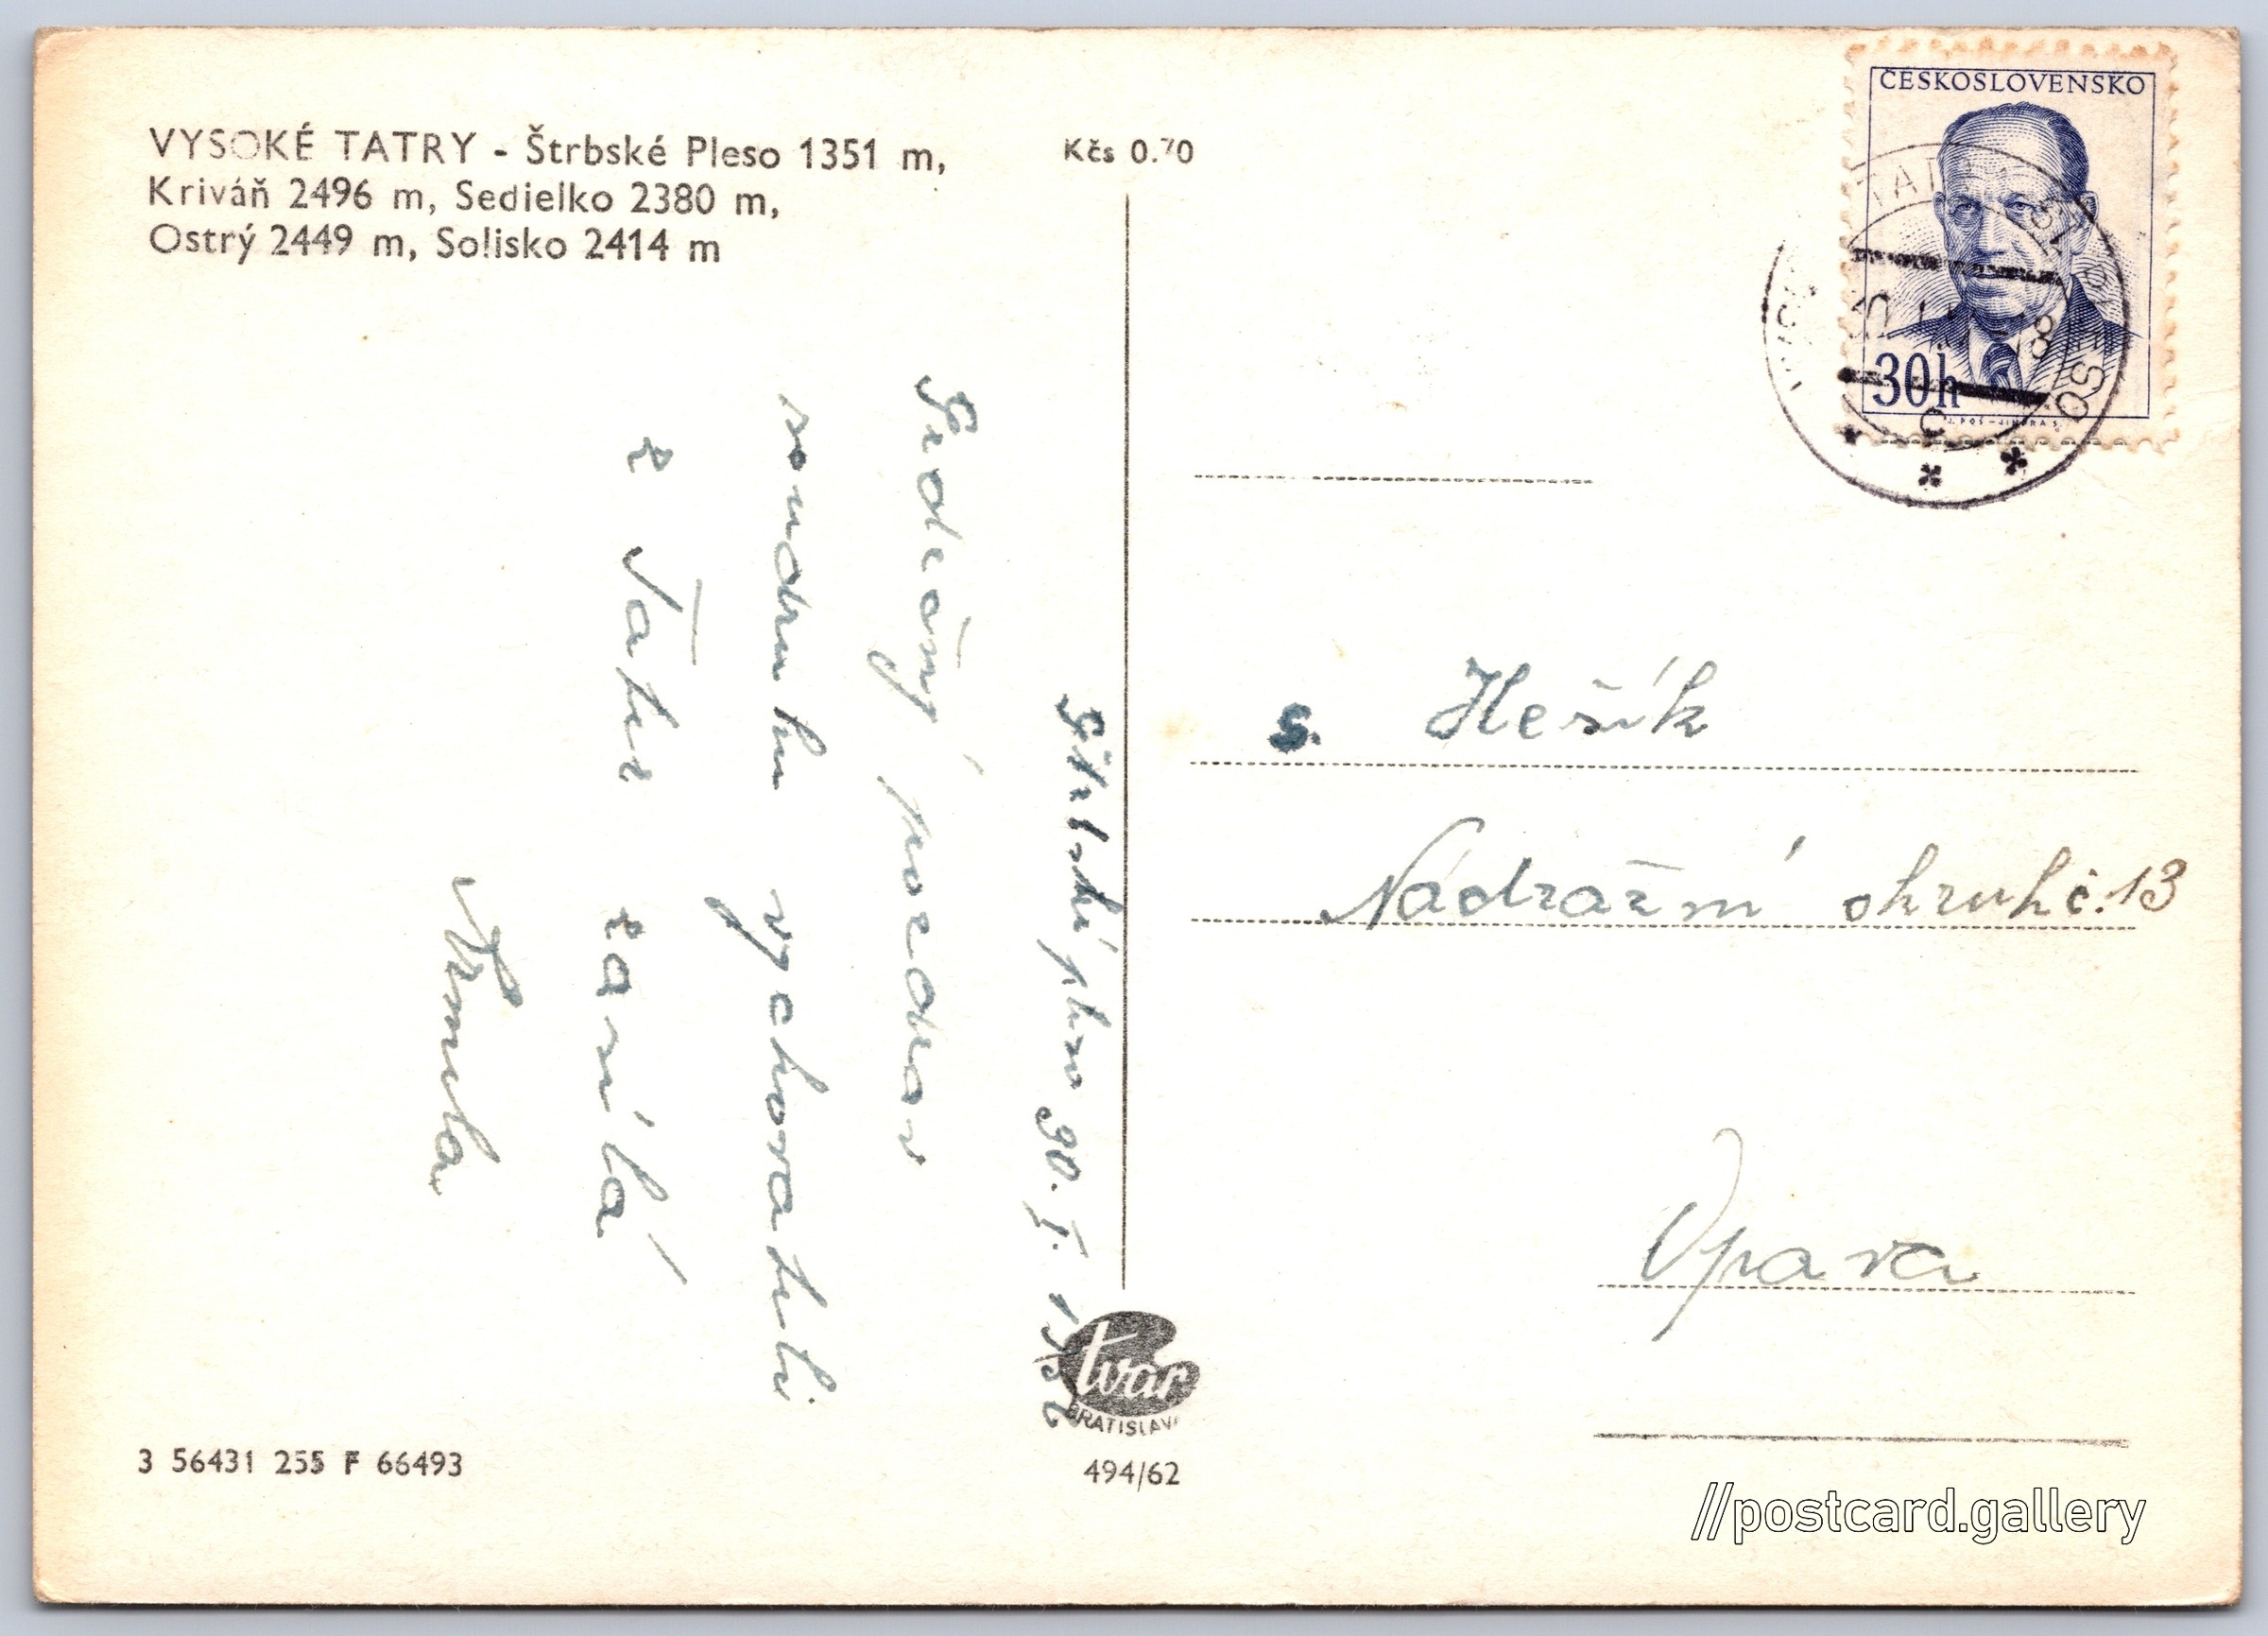 VYSOKÉ TATRY - Štrbské Pleso 1351 m,
Kriváň 2496 m, Sedielko 2380 m,
Ostrý 2449 m, Solisko 2414 m
Kčs 0.70
ČESKOSLOVENSKO
30h
Štrbské pleso 30. I. 19
Srdečný pozdrav
soudruhu vychovateli
z Tater zasílá
s. Hešík
Nádražní okruh č. 13
Opava
tvar
BRATISLAVA
494/62
3 56431 255 F 66493
//postcard.gallery